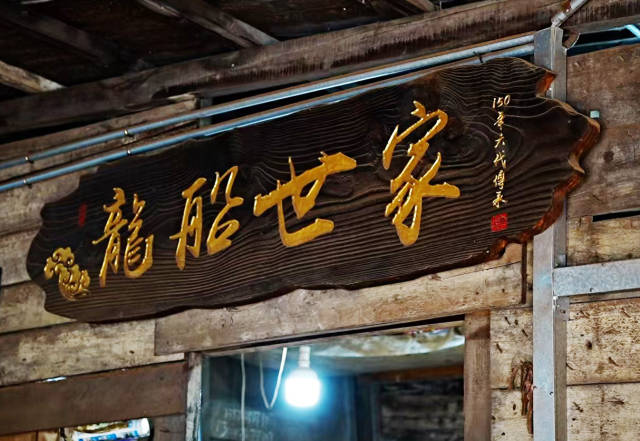 龍船世家
150年六代傳承